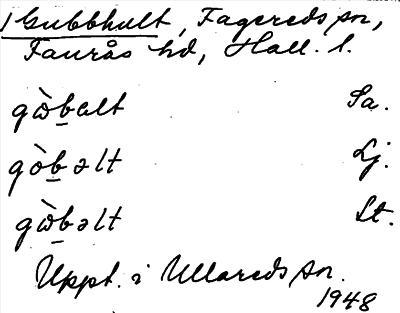 Gubbhult, Fagereds sn,
Faurås hd, Hall. l.
gɷ̀balt Sa.
gòbəlt Lj.
gɷ̀bəlt St.
Uppt. i Ullareds sn.
1948